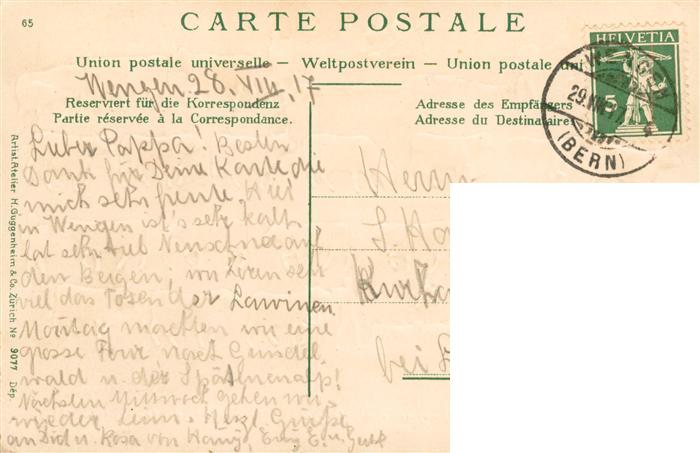 65
CARTE POSTALE
Union postale universelle – Weltpostverein – Union postale uni
HELVETIA
5
WENGEN
29.VIII.17
(BERN)
Wengen 28. VIII. 17
Reserviert für die Korrespondenz
Partie réservée à la Correspondance.
Adresse des Empfängers
Adresse du Destinataire
Lieber Pappa! Besten
Dank für Deine Karte die
mich sehr freute. Hier
in Wengen ist's sehr kalt
hat sehr viel Neuschnee auf
den Bergen, wir hören sehr
viel das Tosen der Lawinen.
Montag machten wir eine
grosse Tour nach Grindel-
wald u. der
Nächsten Mittwoch gehen wir
wieder heim. Herzl. Grüsse
an Dich u. Rosa von
Herrn
Kurha
bei
Artist. Atelier H. Guggenheim & Co. Zürich No 9077 Dép.